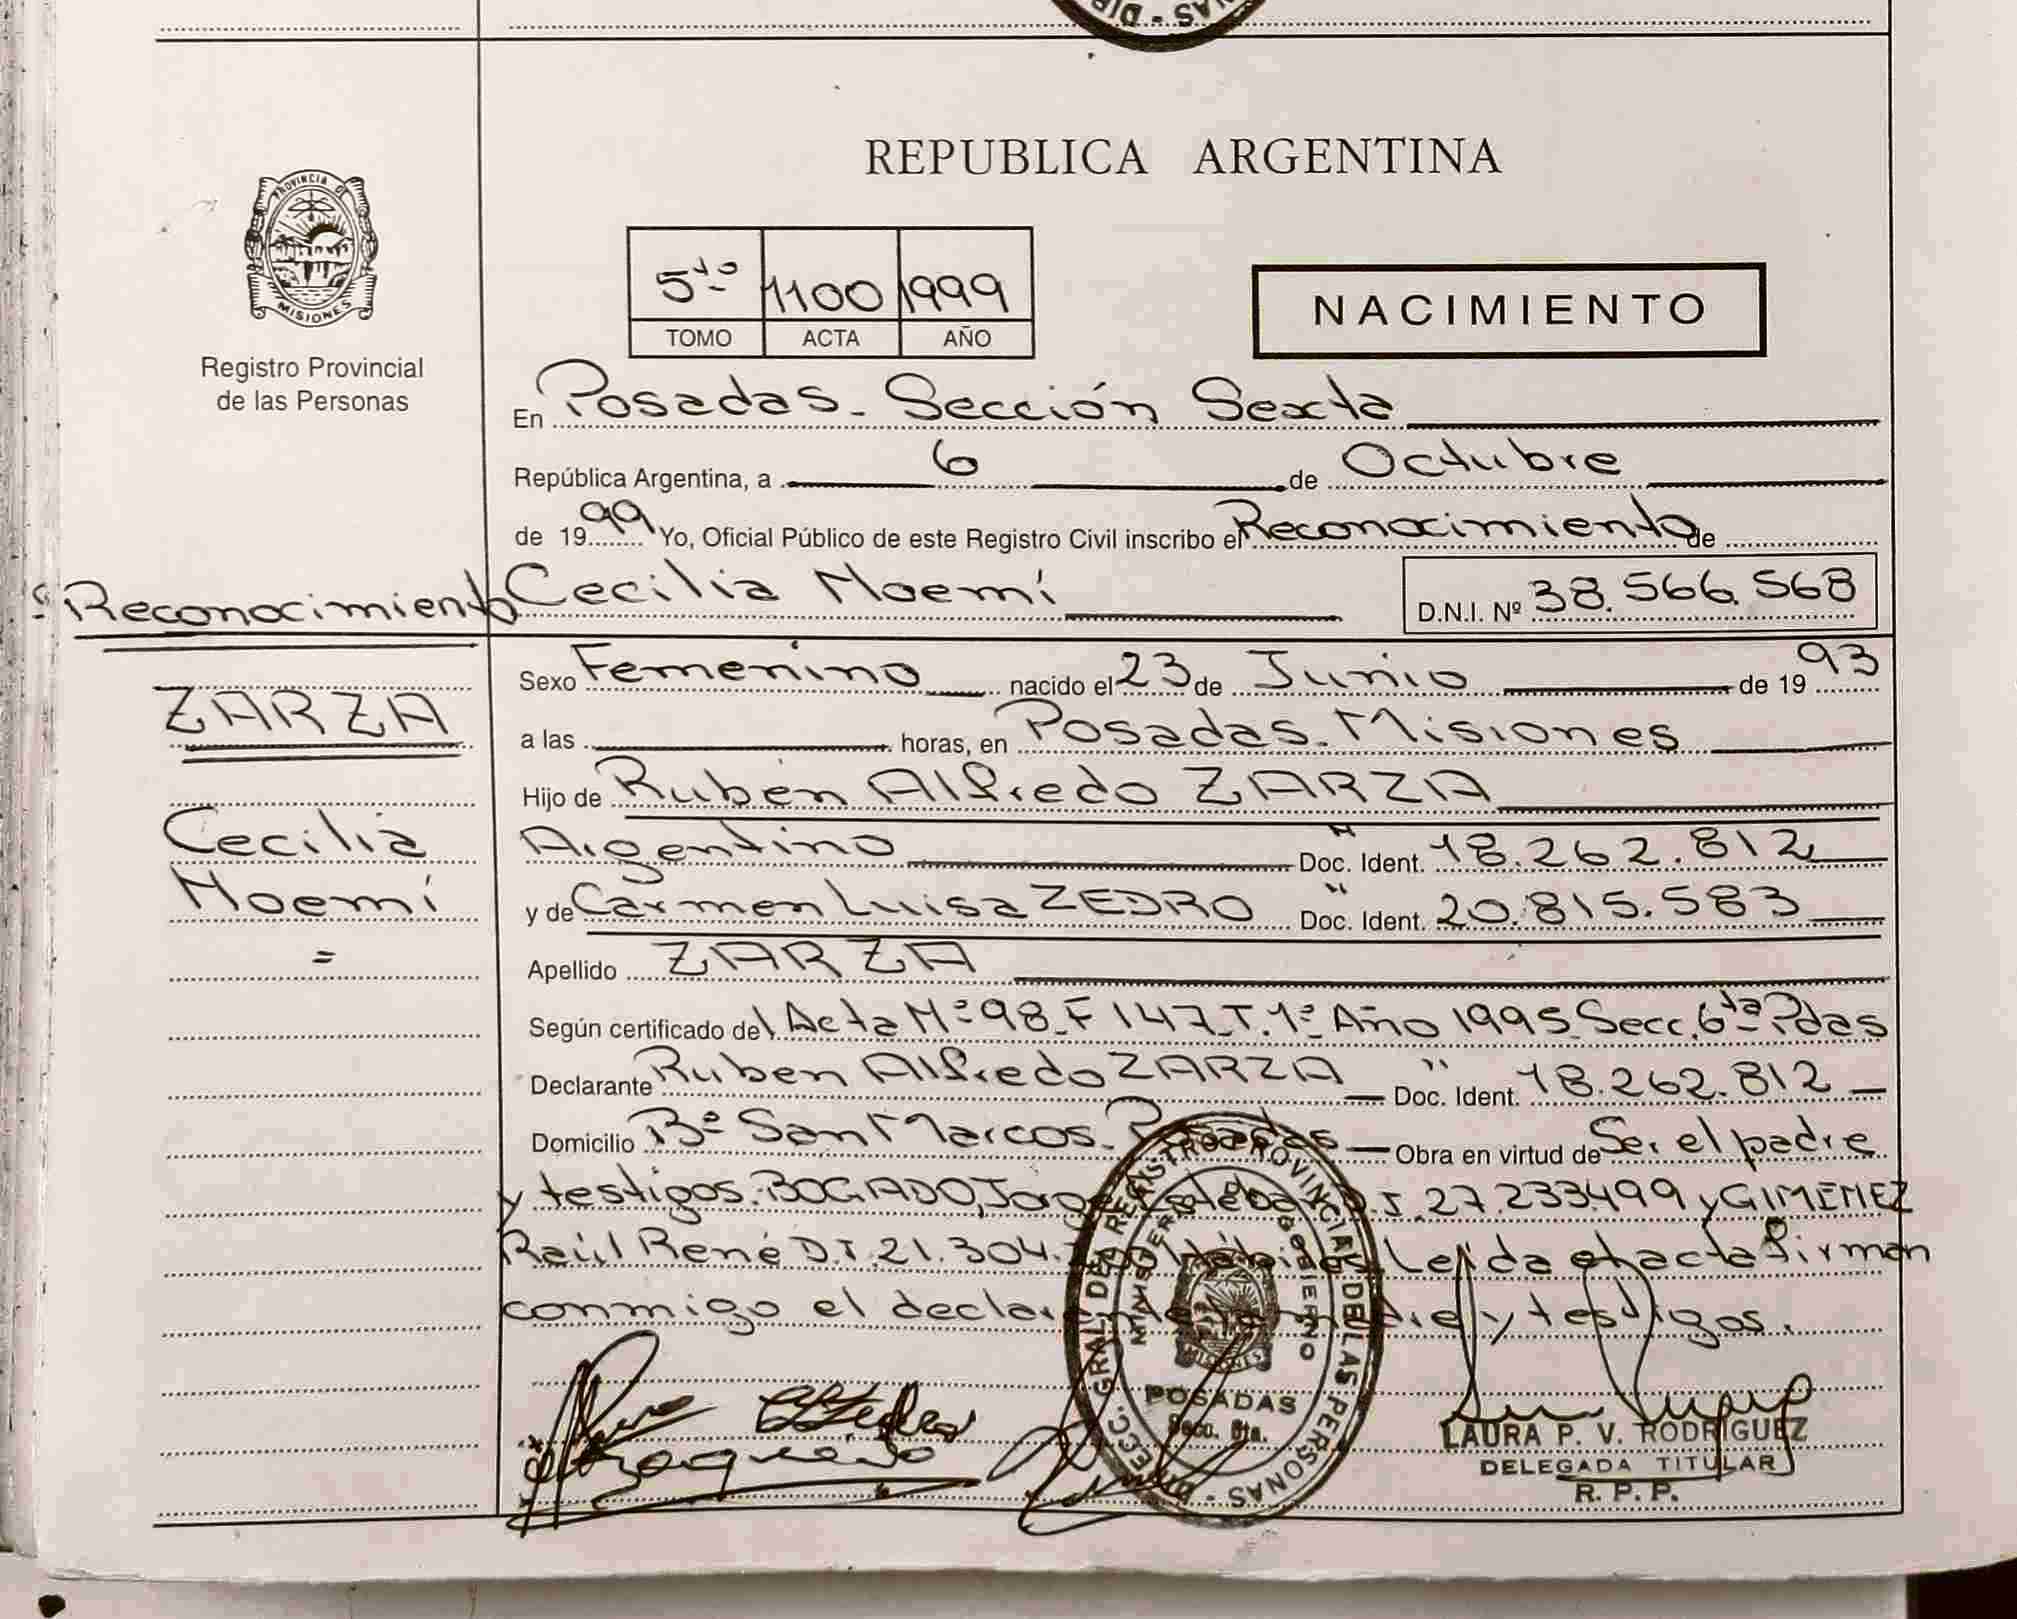 REPUBLICA ARGENTINA
PROVINCIA DE
MISIONES
Registro Provincial
de las Personas
5to 1100 1999
TOMO ACTA AÑO
NACIMIENTO
En Posadas - Sección Sexta
República Argentina, a 6 de Octubre
de 1999 Yo, Oficial Público de este Registro Civil inscribo el Reconocimiento de
Reconocimiento
Cecilia Noemí D.N.I. Nº 38.566.568
ZARZA
Cecilia
Noemí
=
Sexo Femenino nacido el 23 de Junio de 1993
a las horas, en Posadas - Misiones
Hijo de Rubén Alfredo ZARZA
Argentino " Doc. Ident. 18.262.812
y de Carmen Luisa ZEDRO " Doc. Ident. 20.815.583
Apellido ZARZA
Según certificado del Acta Nº 98 - F 147 - T. 1º Año 1995 Secc. 6ta Pdas
Declarante Ruben Alfredo ZARZA " Doc. Ident. 18.262.812
Domicilio Bº San Marcos - Posadas Obra en virtud de Ser el padre
y testigos: BOGADO, Jorge D.I. 27.233.499 y GIMENEZ
Raúl René D.I. 21.304. Leida el acta firman
conmigo el y testigos.
DIRECC. GRAL. DEL REGISTRO PROVINCIAL DE LAS PERSONAS
MINISTERIO GOBIERNO
MISIONES
POSADAS
Secc. 6ta.
LAURA P. V. RODRIGUEZ
DELEGADA TITULAR
R. P. P.